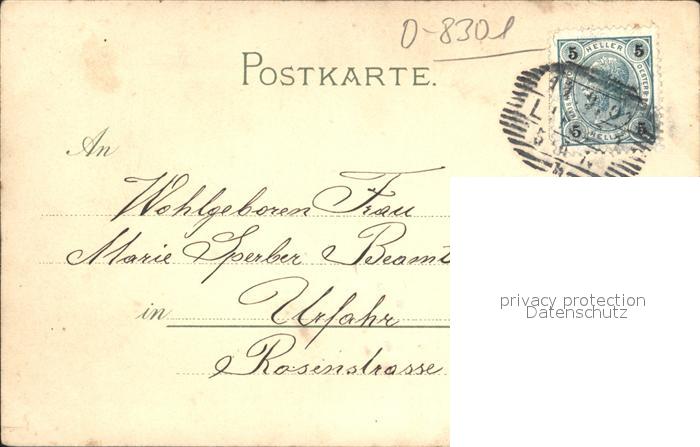 0-8301
POSTKARTE.
5 HELLER 5
5 HELLER 5
An
Wohlgeboren Frau
Marie Sperber Beamt
in Urfahr
Rosenstrasse
privacy protection
Datenschutz